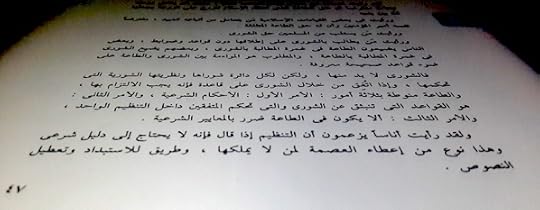 ورأيت في بعض القيادات الإسلامية من يتعامل من أتباعه
لنفسه أمير المؤمنين وأن له حق الطاعة المطلقة
ورأيت من يسلب من المسلمين حق الشورى
ورأيت من يطالب بالشورى على إطلاقها دون قواعد وضوابط ، وبعض
الناس يضيعون الطاعة في غمرة المطالبة بالشورى ، وبعضهم يضيع الشورى
في غمرة المطالبة بالطاعة ، والمطلوب هو المواءمة بين الشورى والطاعة على
ضوء قواعد صحيحة معروفة .
فالشورى لا بد منها ، ولكن لكل دائرة شوراها ونظريتها الشورية التي
تحكمها ، وإذا اتُّفق من خلال الشورى على قاعدة فإنه يجب الالتزام بها ،
والطاعة منوطة بثلاثة أمور : الأمر الأول : الأحكام الشرعية ، والأمر الثاني :
هو القواعد التي تنبثق عن الشورى والتي تحكم المتفقين داخل التنظيم الواحد ،
والأمر الثالث : ألا يكون في الطاعة ضرر بالمعايير الشرعية .
ولقد رأيت أناساً يزعمون أن التنظيم إذا قال فإنه لا يحتاج إلى دليل شرعي
وهذا نوع من إعطاء العصمة لمن لا يملكها ، وطريق للاستبداد وتعطيل
النصوص .
٤٧